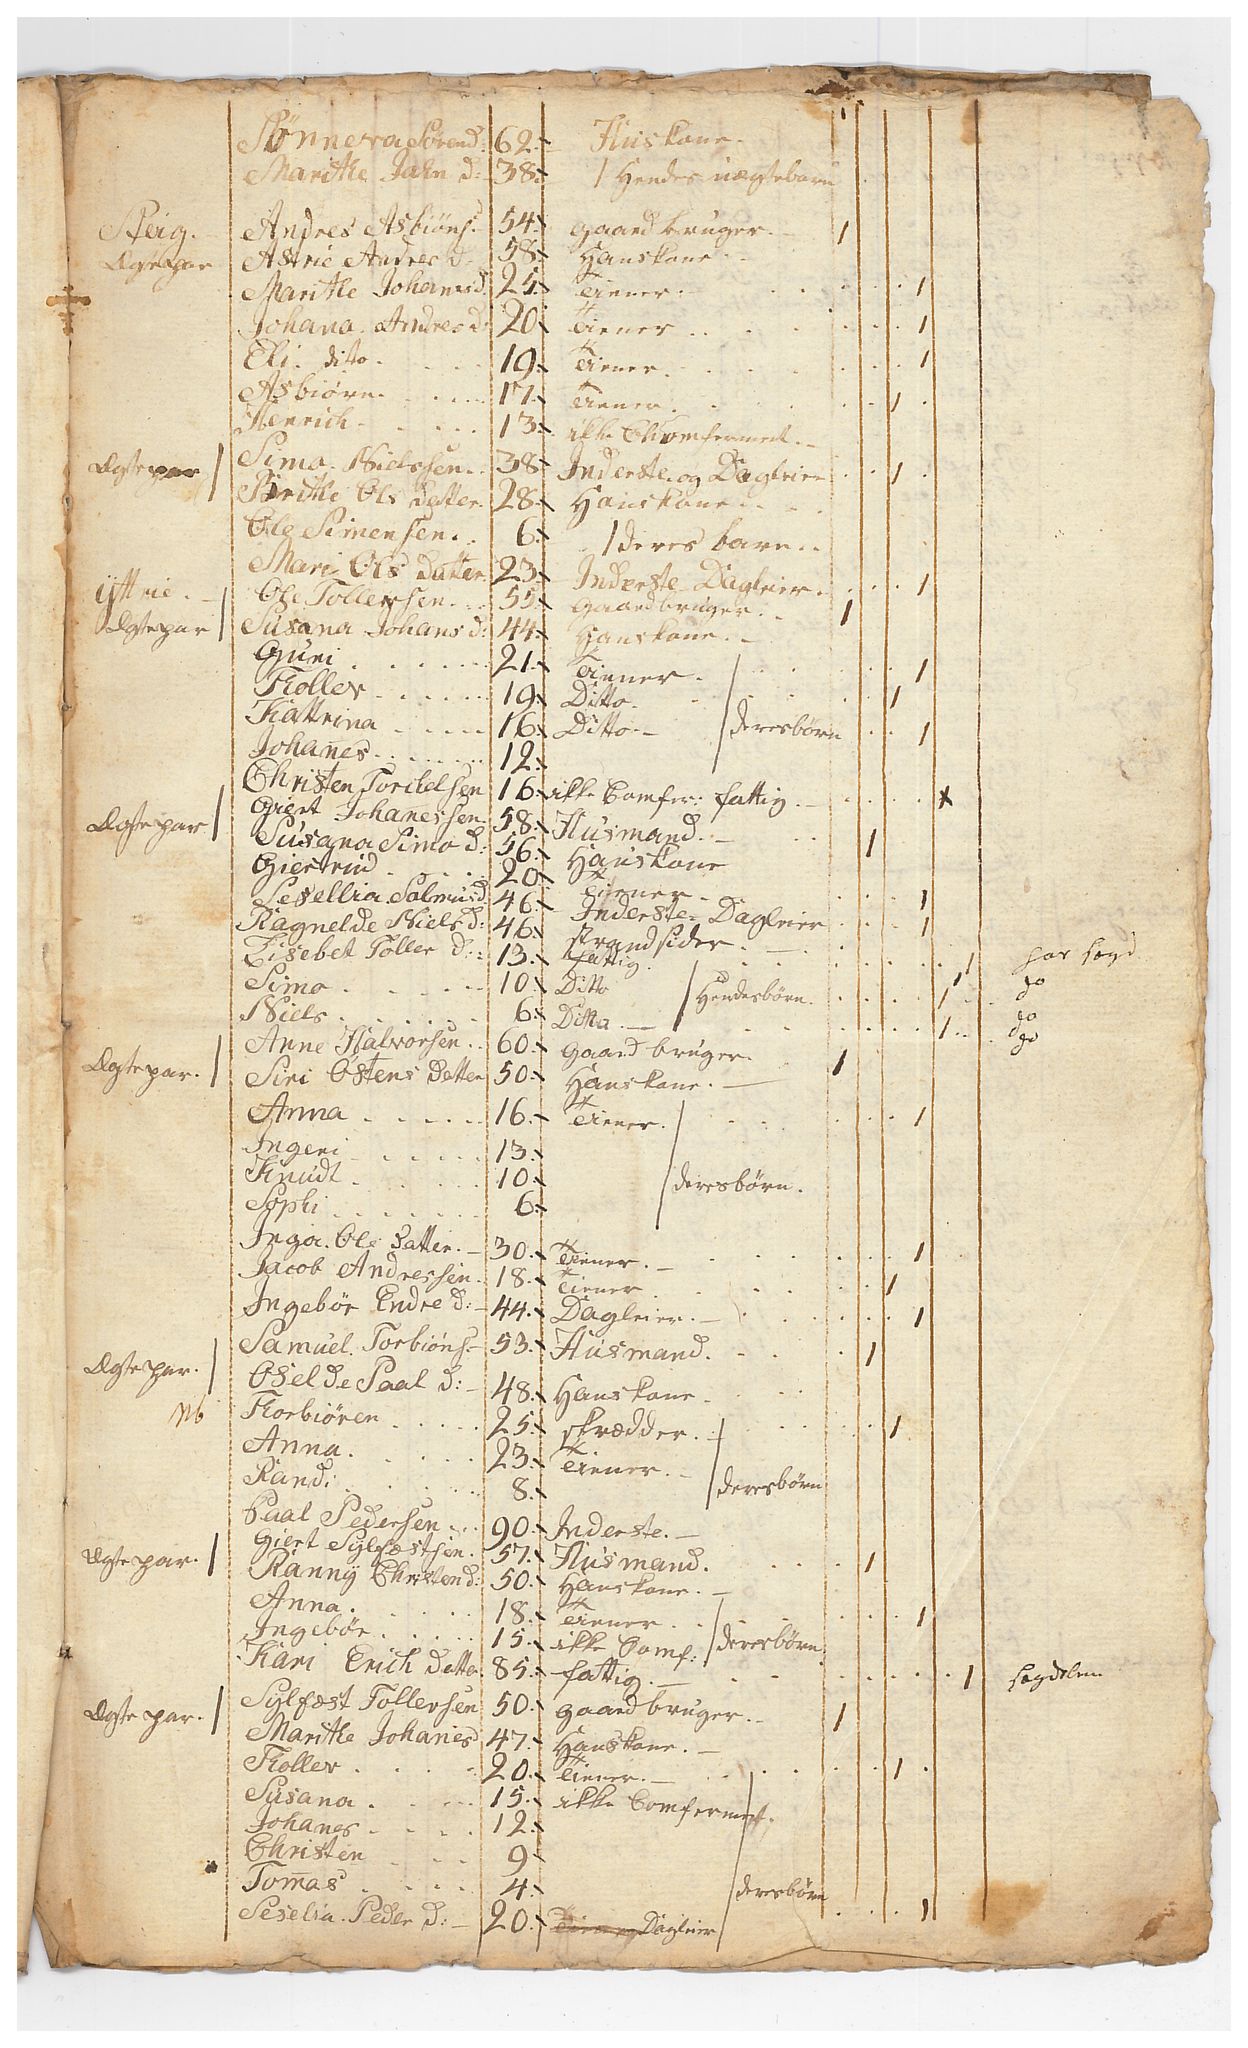 Sønneva Sørend: 62. Huskone.
Marithe Jahn d: 38. / Hendes uægtebarn
Steig. Andres Asbiøns. 54. gaard bruger. 1
Ægtepar Astrie Andres d. 58. Hanskone
Marithe Johanesd. 25. Tiener. 1
Johana. Andres d: 20. Tiener 1
Eli. ditto. 19. Tiener. 1
Asbiørn. 17. Tiener. 1
Henrich. 13. ikke Chomfermet.
Ægtepar / Simo. Nielssen. 38. Inderste og Dagleier 1
Birithe Ols Datter. 28. Hanskone.
Ole Simensen. 6. / deres barn.
Mari Ols Datter. 23. Inderste Dagleier. 1
Yttrie. Ole Tollevsen. 55. gaardbruger. 1
Ægtepar / Susana Johans d: 44. Hanskone.
Guri 21. Tiener. 1
Tollev 19. Ditto. 1
Kattrina 16. Ditto / deresbørn 1
Johanes 12.
Christen Torkelsen 16. ikke Comfer: fattig. x
Ægtepar / Giert Johanessen. 58. Husmand. 1
Susana Simo d: 56. Hanskone
Giertrud 20. Tiener. 1
Sesellia Salmusd 46. Inderste Dagleier 1
Ragnelde Niels d: 46. strandsider.
Lisebet Toller d: 13. fattig. 1 har lægd
Simo 10. Ditto / Hendesbørn. 1 do
Niels 6. Ditta. 1 do
Anne Halvorsen. 60. gaard bruger. 1 do
Ægtepar. / Siri Østens Datter 50. Hanskone.
Anna 16. Tiener. 1
Ingeri 13.
Knudt 10. / deresbørn.
Sophi 6.
Inga. Ols Datter. 30. Tiener. 1
Jacob Andressen. 18. Tiener 1
Ingebør Endre d: 44. Dagleier. 1
Ægtepar. / Samuel. Torbiøns. 53. Husmand. 1
Oselde Paal d: 48. Hanskone.
Nb Torbiøren 25. skrædder. 1
Anna. 23. Tiener. / deresbørn
Rand: 8.
Paal Pedersen 90. Inderste.
Ægte par. / Giert Sylfæstsen. 57. Husmand. 1
Ranny Christen d: 50. Hanskone.
Anna. 18. Tiener. 1
Ingebør 15. ikke Comf: / deresbørn
Kari Erich Datter. 85. fattig. 1 lægdelem
Ægte par. / Sylfæst Tollevsen 50. gaard bruger. 1
Marithe Johanes 47. Hanskone.
Tollev 20. Tiener. 1
Susana. 15. ikke Comfermet.
Johanes 12.
Christen 9.
Tomas 4. / deresbørn
Seselia. Peder d: 20. Tiener Dagleier 1